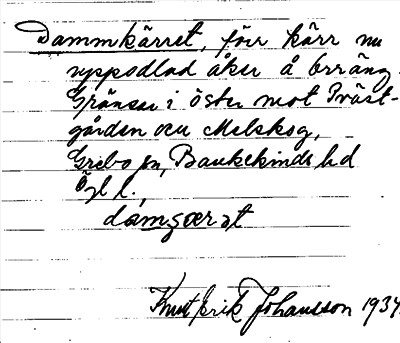 Dammkärret, förr kärr nu
uppodlad åker å Orräng.
Gränsar i öster mot Präst-
gården och Melskog,
Grebo sn, Bankekinds hd
Ögl l.,
damçæret
Knut Erik Johansson 1934.